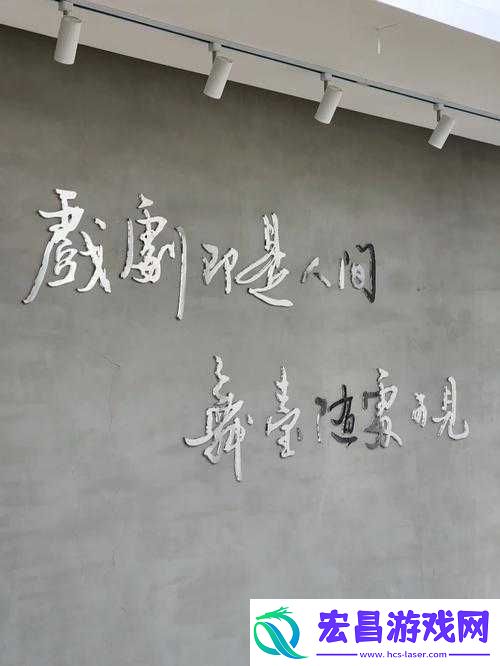 戲劇即是人间
舞臺随處可見
宏昌游戏网
www.hcs-laser.com